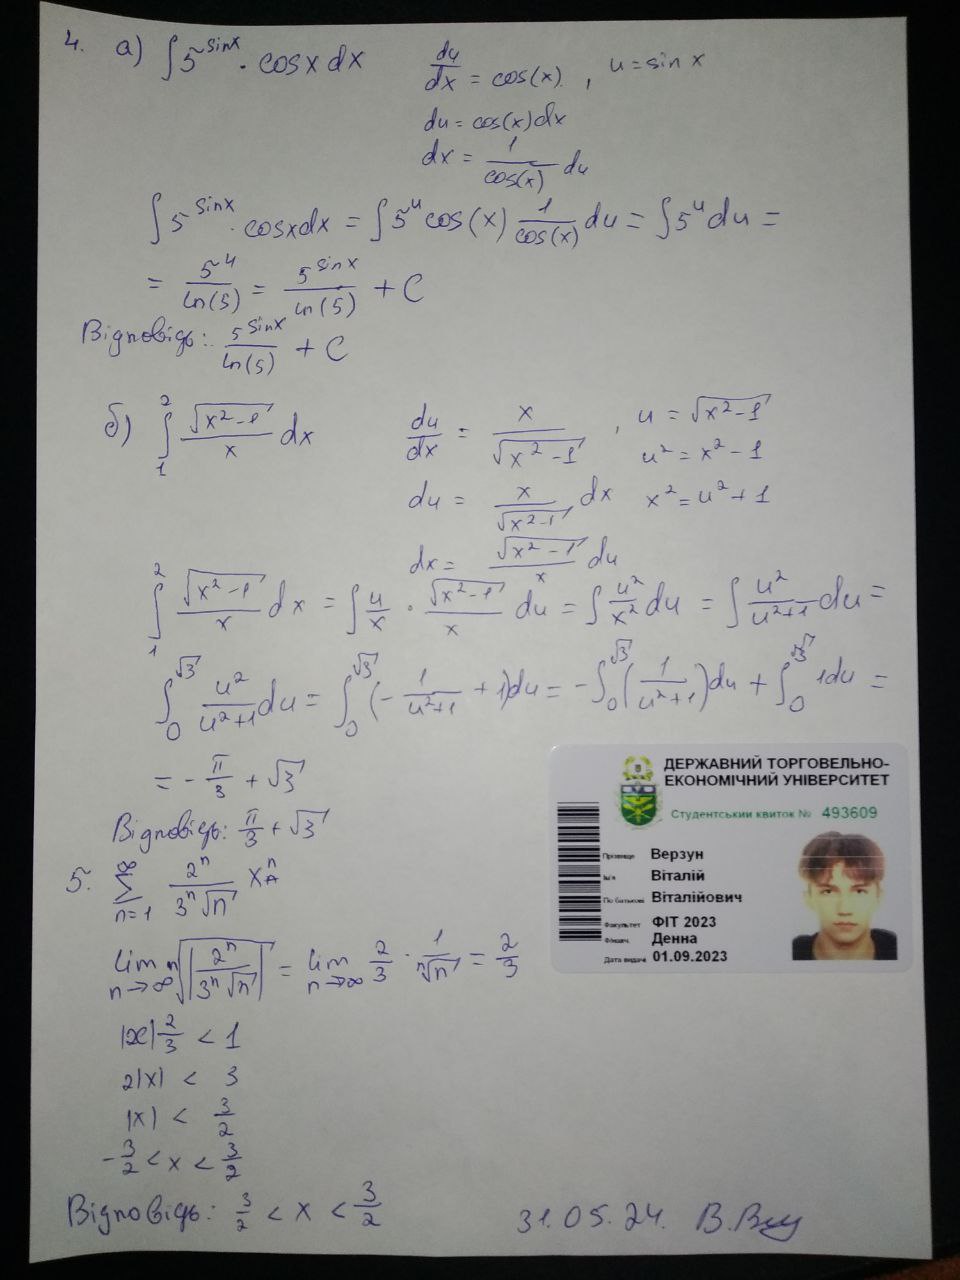 4. a) ∫5^sinx · cosxdx du/dx = cos(x), u = sin x
du = cos(x)dx
dx = 1/cos(x) du
∫5^sinx · cosxdx = ∫5^u cos(x) 1/cos(x) du = ∫5^u du =
= 5^u/ln(5) = 5^sinx/ln(5) + C
Відповідь: 5^sinx/ln(5) + C
б) ∫_1^2 √(x²-1)/x dx du/dx = x/√(x²-1), u = √(x²-1)
u² = x²-1
du = x/√(x²-1) dx x² = u²+1
dx = √(x²-1)/x du
∫_1^2 √(x²-1)/x dx = ∫ u/x · √(x²-1)/x du = ∫ u²/x² du = ∫ u²/(u²+1) du =
∫_0^√3 u²/(u²+1) du = ∫_0^√3 (-1/(u²+1) + 1)du = -∫_0^√3 (1/(u²+1))du + ∫_0^√3 1du =
= -π/3 + √3
Відповідь: π/3 + √3
5. ∑_{n=1}^∞ 2^n/(3^n √n) x^n
lim_{n→∞} ⁿ√|2^n/(3^n √n)| = lim_{n→∞} 2/3 · 1/ⁿ√n = 2/3
|x| 2/3 < 1
2|x| < 3
|x| < 3/2
-3/2 < x < 3/2
Відповідь: 3/2 < x < 3/2
31.05.24.
ДЕРЖАВНИЙ ТОРГОВЕЛЬНО-
ЕКОНОМІЧНИЙ УНІВЕРСИТЕТ
Студентський квиток № 493609
Прізвище Верзун
Ім'я Віталій
По батькові Віталійович
Факультет ФІТ 2023
Денна
Дата видачі 01.09.2023